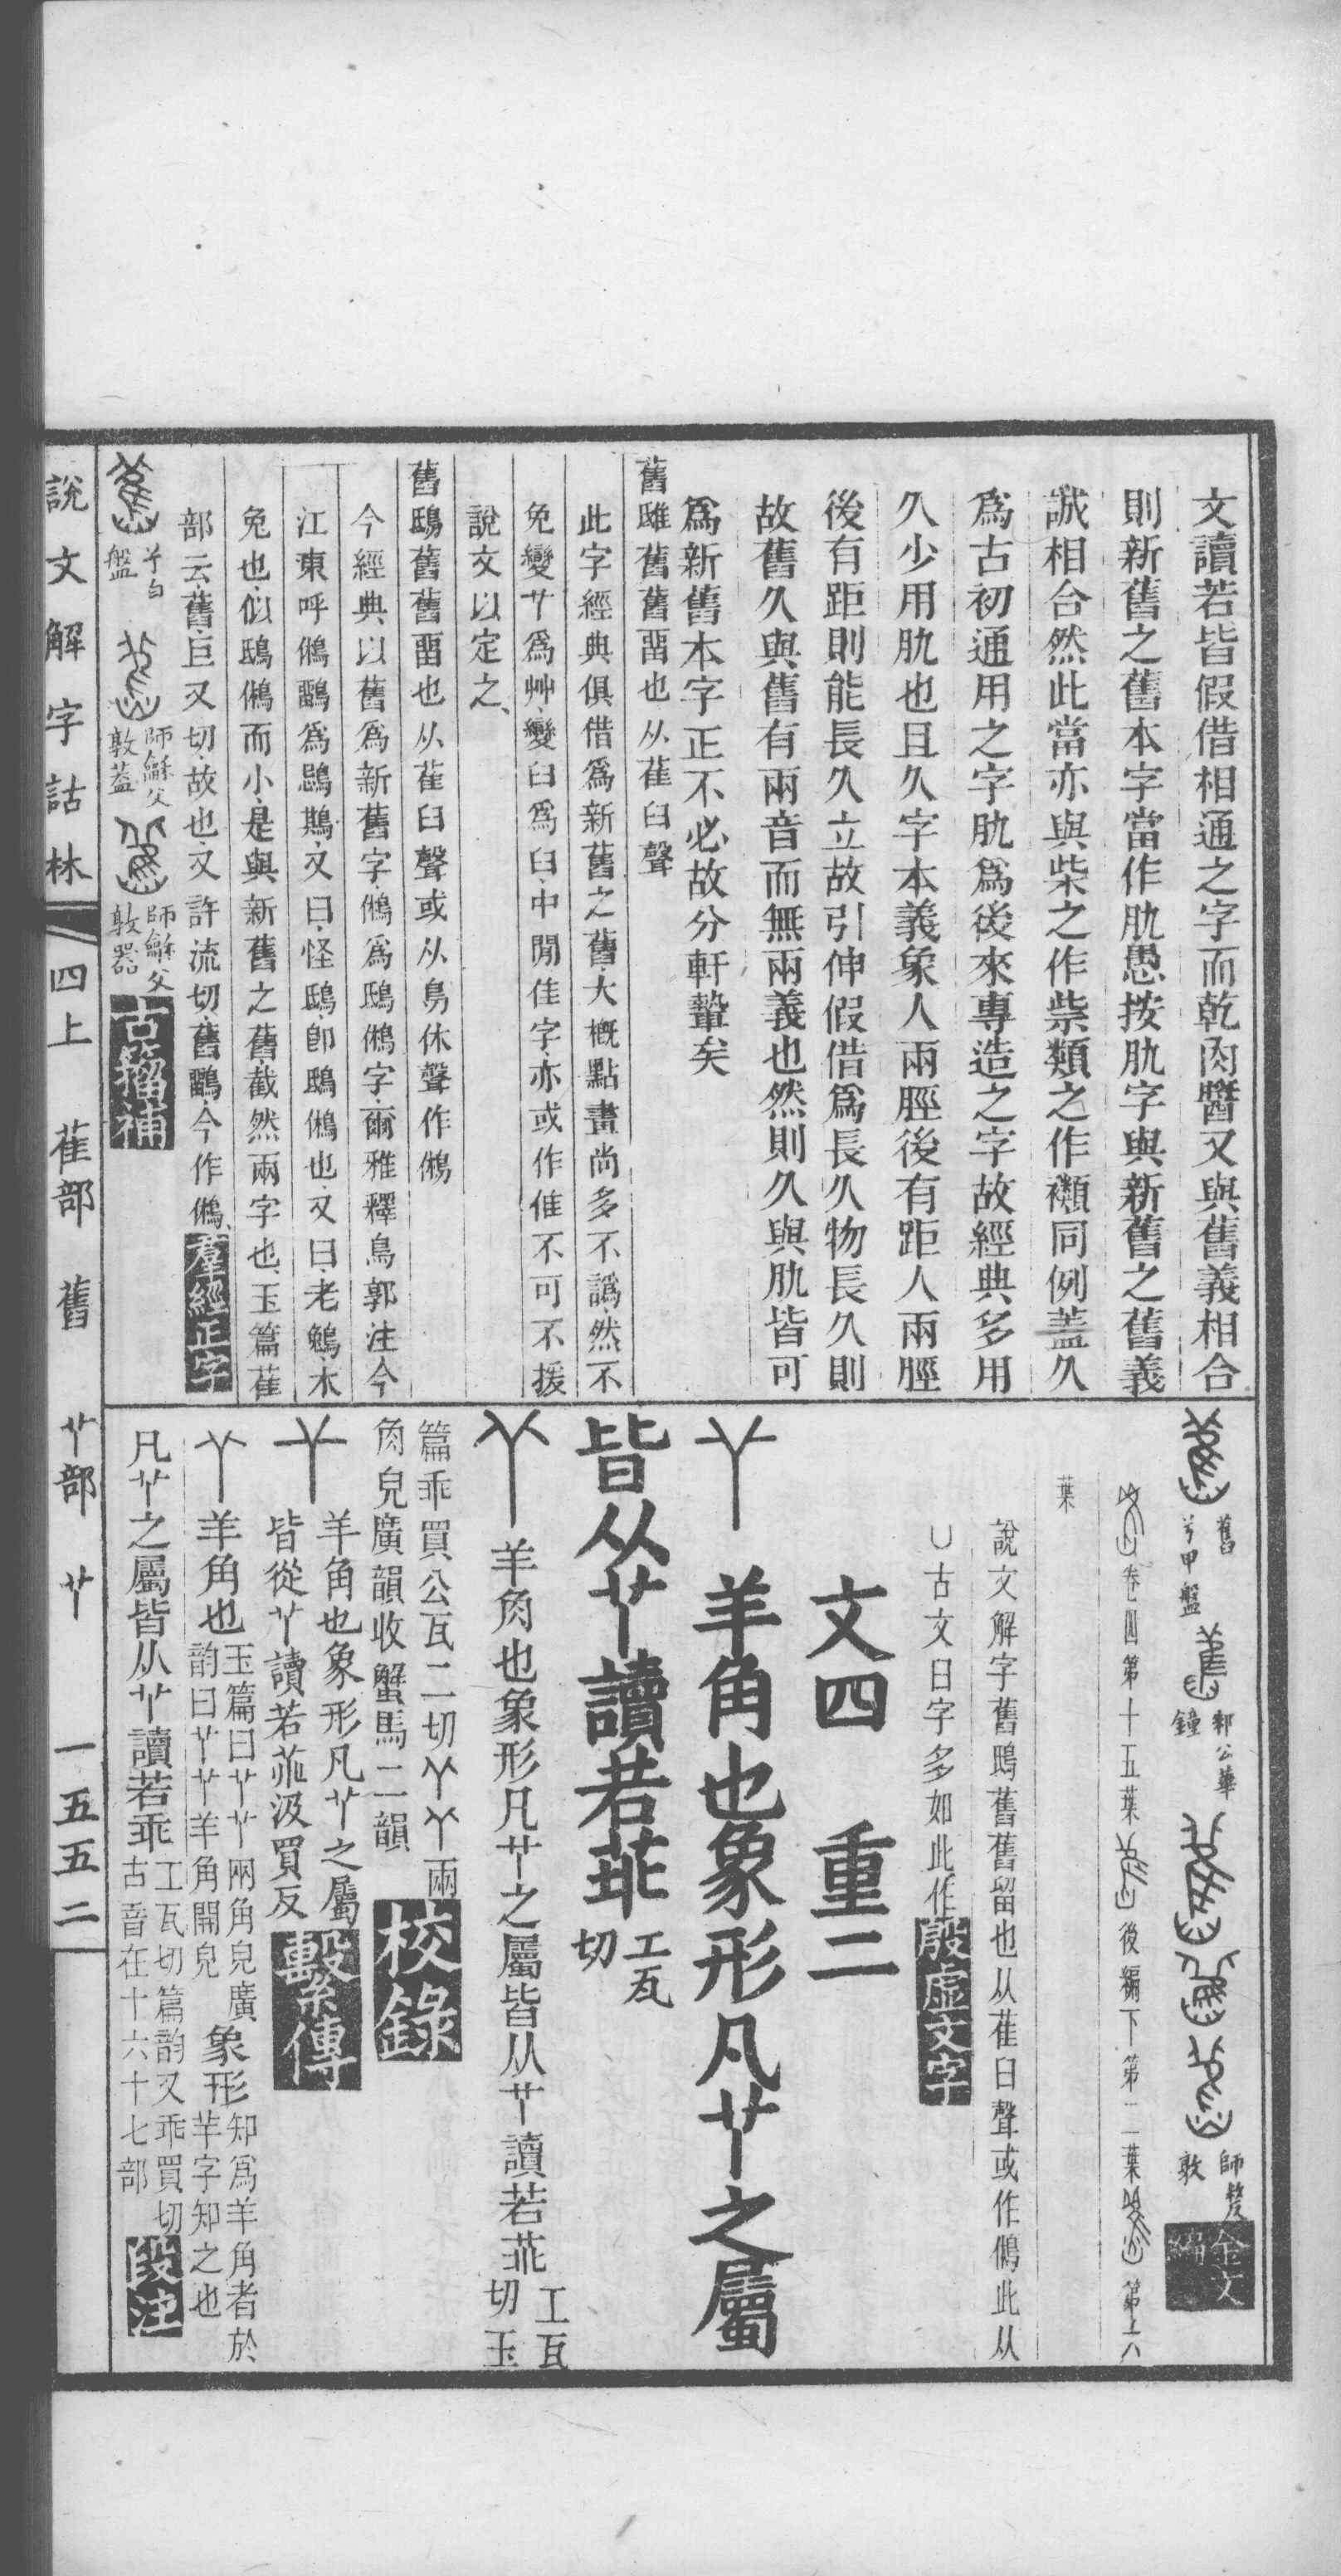 文讀若皆假借相通之字而乾肉醫又與舊義相合
則新舊之舊本字當作肍愚按肍字與新舊之舊義
誠相合然此當亦與柴之作祡類之作禷同例蓋久
爲古初通用之字肍爲後來專造之字故經典多用
久少用肍也且久字本義象人兩脛後有距人兩脛
後有距則能長久立故引伸假借爲長久物長久則
故舊久與舊有兩音而無兩義也然則久與肍皆可
爲新舊本字正不必故分軒輊矣
舊雖舊舊畱也从萑臼聲
此字經典俱借爲新舊之舊大概點畫尚多不譌然不
免變𦫳爲艸變臼爲臼中閒隹字亦或作隹不可不援
說文以定之
舊鴟舊舊畱也从萑臼聲或从鳥休聲作鵂
今經典以舊爲新舊字鵂爲鴟鵂字爾雅釋鳥郭注今
江東呼鵂鶹爲鶝鶀又曰怪鴟卽鴟鵂也又曰老鵵木
兔也似鴟鵂而小是與新舊之舊截然兩字也玉篇萑
部云舊巨又切故也又許流切舊鶹今作鵂羣經正字
兮白盤 師龢父敦蓋 師龢父敦器 古籀補
舊 兮甲盤 邾公華鐘 師嫠敦 金文編
卷四第十五葉 後編下第二葉 第六
葉
說文解字舊鴟舊舊留也从萑臼聲或作鵂此从
凵古文臼字多如此作殷虛文字
文四 重二
𦫳 羊角也象形凡𦫳之屬
皆从𦫳讀若𦮃 工瓦切
𦫳 羊角也象形凡𦫳之屬皆从𦫳讀若𦮃 工瓦切玉
篇乖買公瓦二切𦫳𦫳兩
角皃廣韻收蟹馬二韻 校錄
𦫳 羊角也象形凡𦫳之屬
皆從𦫳讀若𦮃汲買反 繫傳
𦫳 羊角也 玉篇曰𦫳𦫳兩角皃廣韵曰𦫳𦫳羊角開皃 象形 知爲羊角者於羊字知之也
凡𦫳之屬皆从𦫳讀若乖 工瓦切篇韵又乖買切古音在十六十七部 段注
說文解字詁林 四上 萑部 舊 𦫳部 𦫳 一五五二